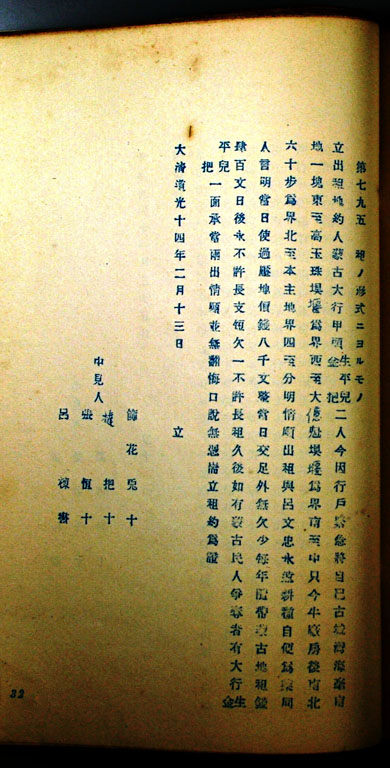 第七九五　租ノ形式ニヨルモノ
立出租地約人蒙古大行甲頭生金平兒把二人今因行戶緊急將自己古城灣海壕南
地一塊東至高玉珠壩堰爲界西至大德魁壩堰爲界南至中只今牛廠房後南北
六十步爲界北至本主地界四至分明情願出租與呂文忠永遠耕種自便爲業同
人言明當日使過壓地價錢八千文整當日交足外無欠少每年隨帶蒙古地租錢
肆百文日後永不許長支短欠一不許長租久後如有蒙古民人爭奪者有大行生金
平兒把一面承當兩出情願並無翻悔口說無憑立租約爲證
大淸道光十四年二月十三日　立
中見人
節花兎十
把十
張恆十
呂禎書
32